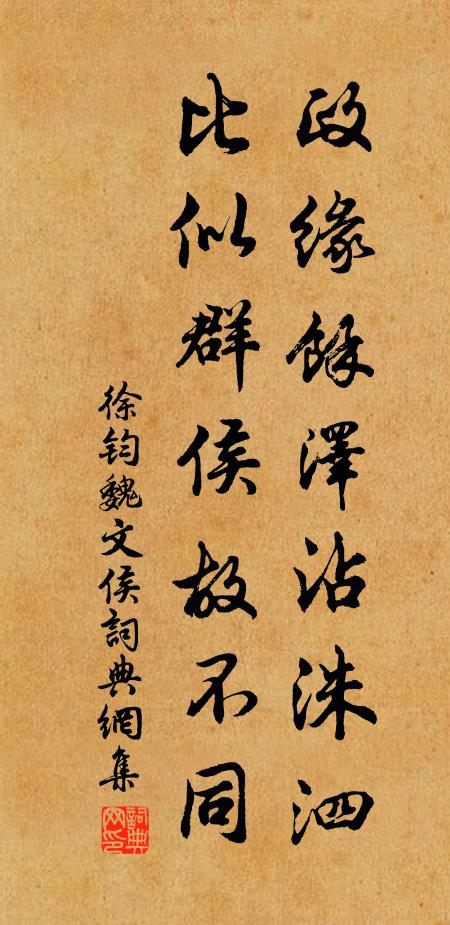 政緣餘澤沾洙泗
比似群侯故不同
徐鈞魏文侯詞典網集
詞典网印